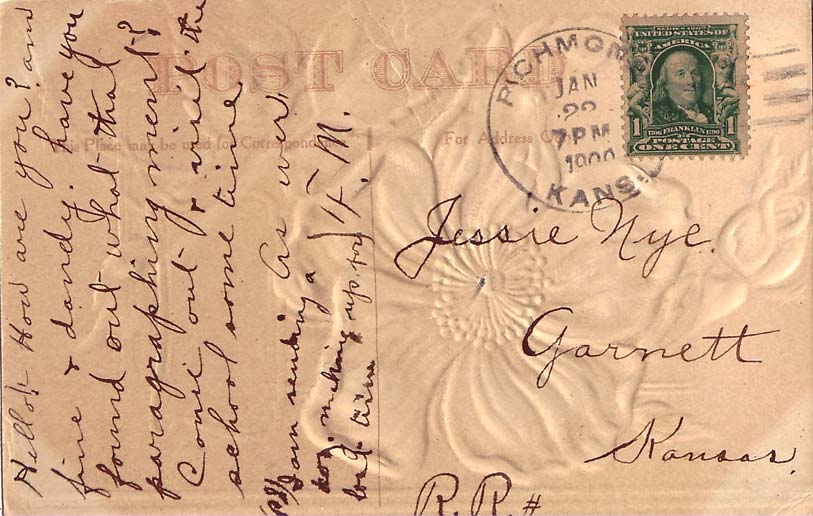 POST CARD
This Place may be used for Correspondence
For Address Only
RICHMOND
JAN
22
7 PM
KANS.
SERIES 1902
UNITED STATES OF
AMERICA
1 1706 FRANKLIN 1790 1
POSTAGE
ONE CENT
Jessie Nye.
Garnett
Kansas.
R. R. #
Hello! How are you? am
fine & dandy. have you
found out what that
paragraphing meant?
Come out & visit the
school some time.
As ever,
F. M.
(PS/ I am sending a
making up for